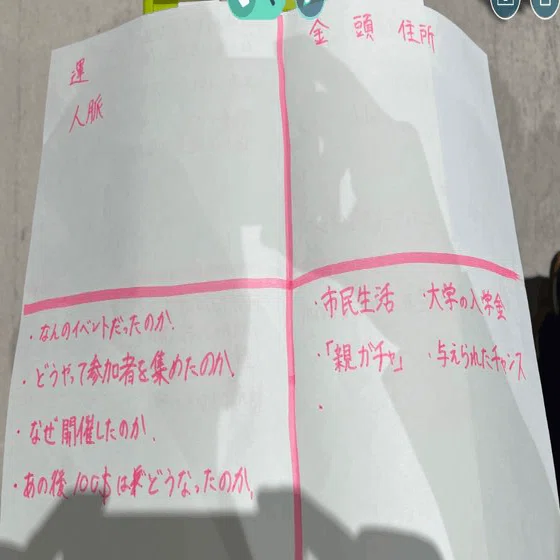 運
人脈
金 頭 住所
・なんのイベントだったのか.
・どうやって参加者を集めたのか.
・なぜ開催したのか.
・あの後100$はどうなったのか.
・市民生活 ・大学の入学金
・「親ガチャ」 ・与えられたチャンス
・